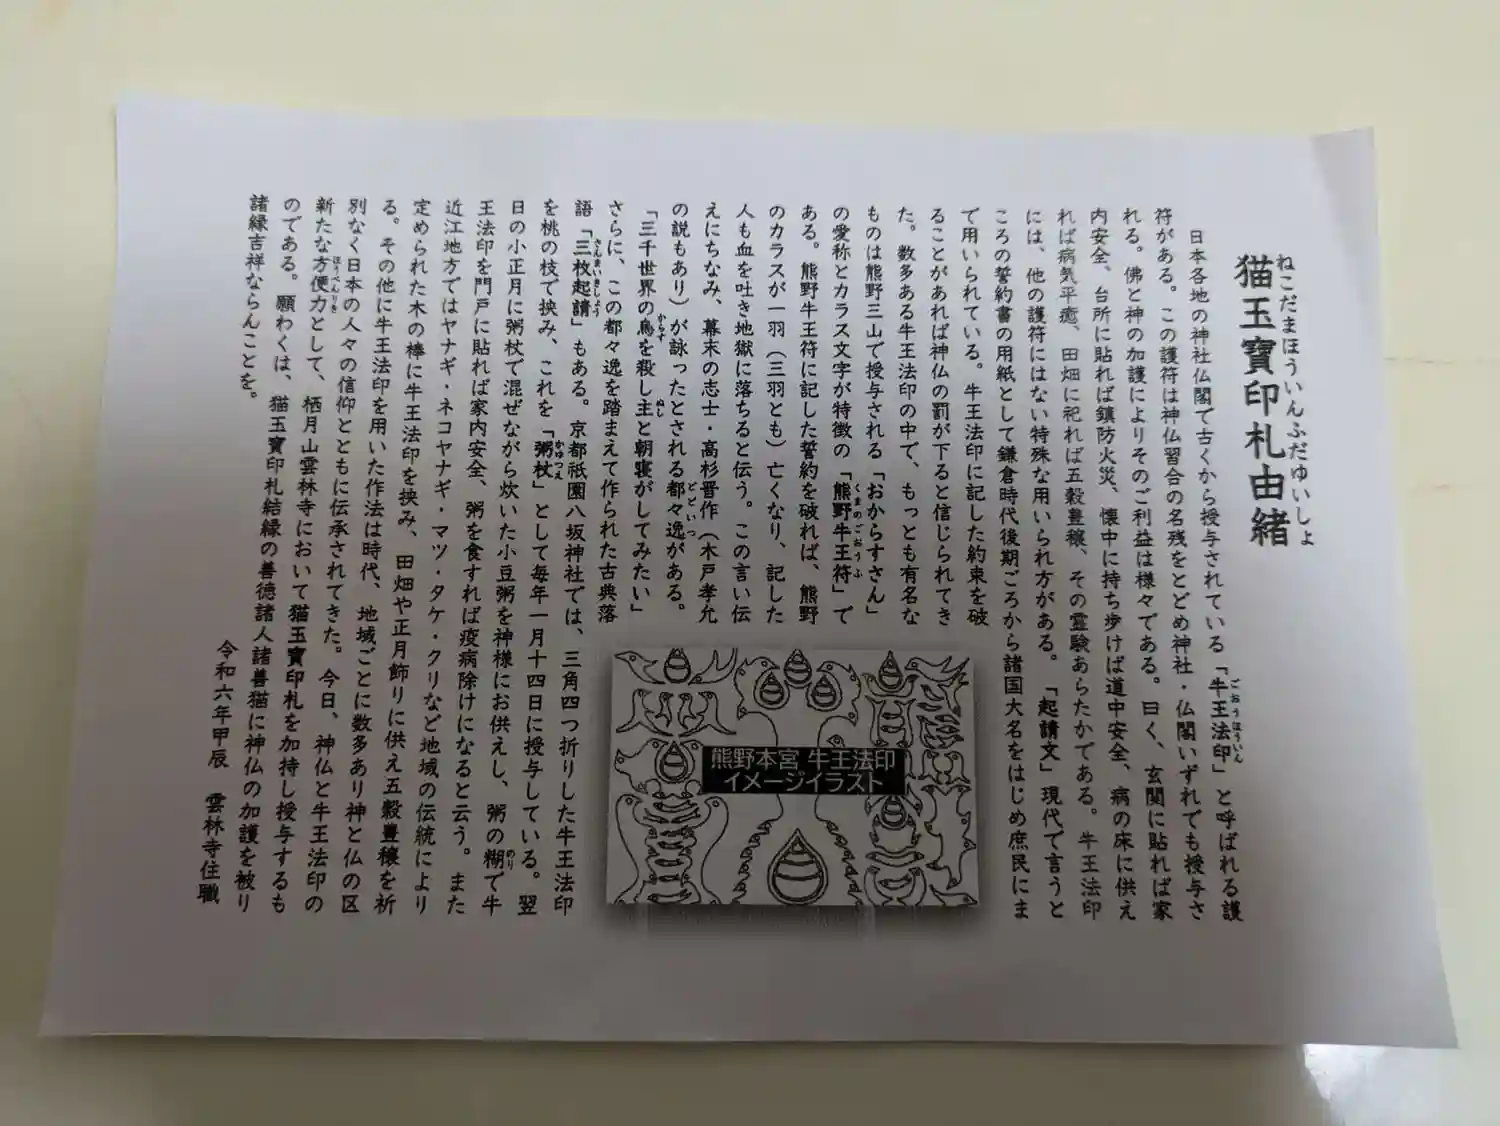 ねこだまほういんふだゆいしょ
猫玉寶印札由緒
日本各地の神社仏閣で古くから授与されている「牛王法印」と呼ばれる護
ごおうほういん
符がある。この護符は神仏習合の名残をとどめ神社・仏閣いずれでも授与さ
れる。佛と神の加護によりそのご利益は様々である。曰く、玄関に貼れば家
内安全、台所に貼れば鎮防火災、懐中に持ち歩けば道中安全、病の床に供え
れば病気平癒、田畑に祀れば五穀豊穣、その霊験あらたかである。牛王法印
には、他の護符にはない特殊な用いられ方がある。「起請文」現代で言うと
ころの誓約書の用紙として鎌倉時代後期ごろから諸国大名をはじめ庶民にま
で用いられている。牛王法印に記した約束を破
ることがあれば神仏の罰が下ると信じられてき
た。数多ある牛王法印の中で、もっとも有名な
ものは熊野三山で授与される「おからすさん」
の愛称とカラス文字が特徴の「熊野牛王符」で
くまのごおうふ
ある。熊野牛王符に記した誓約を破れば、熊野
のカラスが一羽（三羽とも）亡くなり、記した
人も血を吐き地獄に落ちると伝う。この言い伝
えにちなみ、幕末の志士・高杉晋作（木戸孝允
の説もあり）が詠ったとされる都々逸がある。
どどいつ
「三千世界の烏を殺し主と朝寝がしてみたい」
からす
ぬし
さらに、この都々逸を踏まえて作られた古典落
語「三枚起請」もある。京都祇園八坂神社では、三角四つ折りした牛王法印
さんまいきしょう
を桃の枝で挟み、これを「粥杖」として毎年一月十四日に授与している。翌
かゆつえ
日の小正月に粥杖で混ぜながら炊いた小豆粥を神様にお供えし、粥の糊で牛
のり
王法印を門戸に貼れば家内安全、粥を食すれば疫病除けになると云う。また
近江地方ではヤナギ・ネコヤナギ・マツ・タケ・クリなど地域の伝統により
定められた木の棒に牛王法印を挟み、田畑や正月飾りに供え五穀豊穣を祈
る。その他に牛王法印を用いた作法は時代、地域ごとに数多あり神と仏の区
別なく日本の人々の信仰とともに伝承されてきた。今日、神仏と牛王法印の
新たな方便力として、栖月山雲林寺において猫玉寶印札を加持し授与するも
ほうべんりき
のである。願わくは、猫玉寶印札結縁の善徳諸人諸善猫に神仏の加護を被り
諸縁吉祥ならんことを。
令和六年甲辰　雲林寺住職
熊野本宮 牛王法印
イメージイラスト